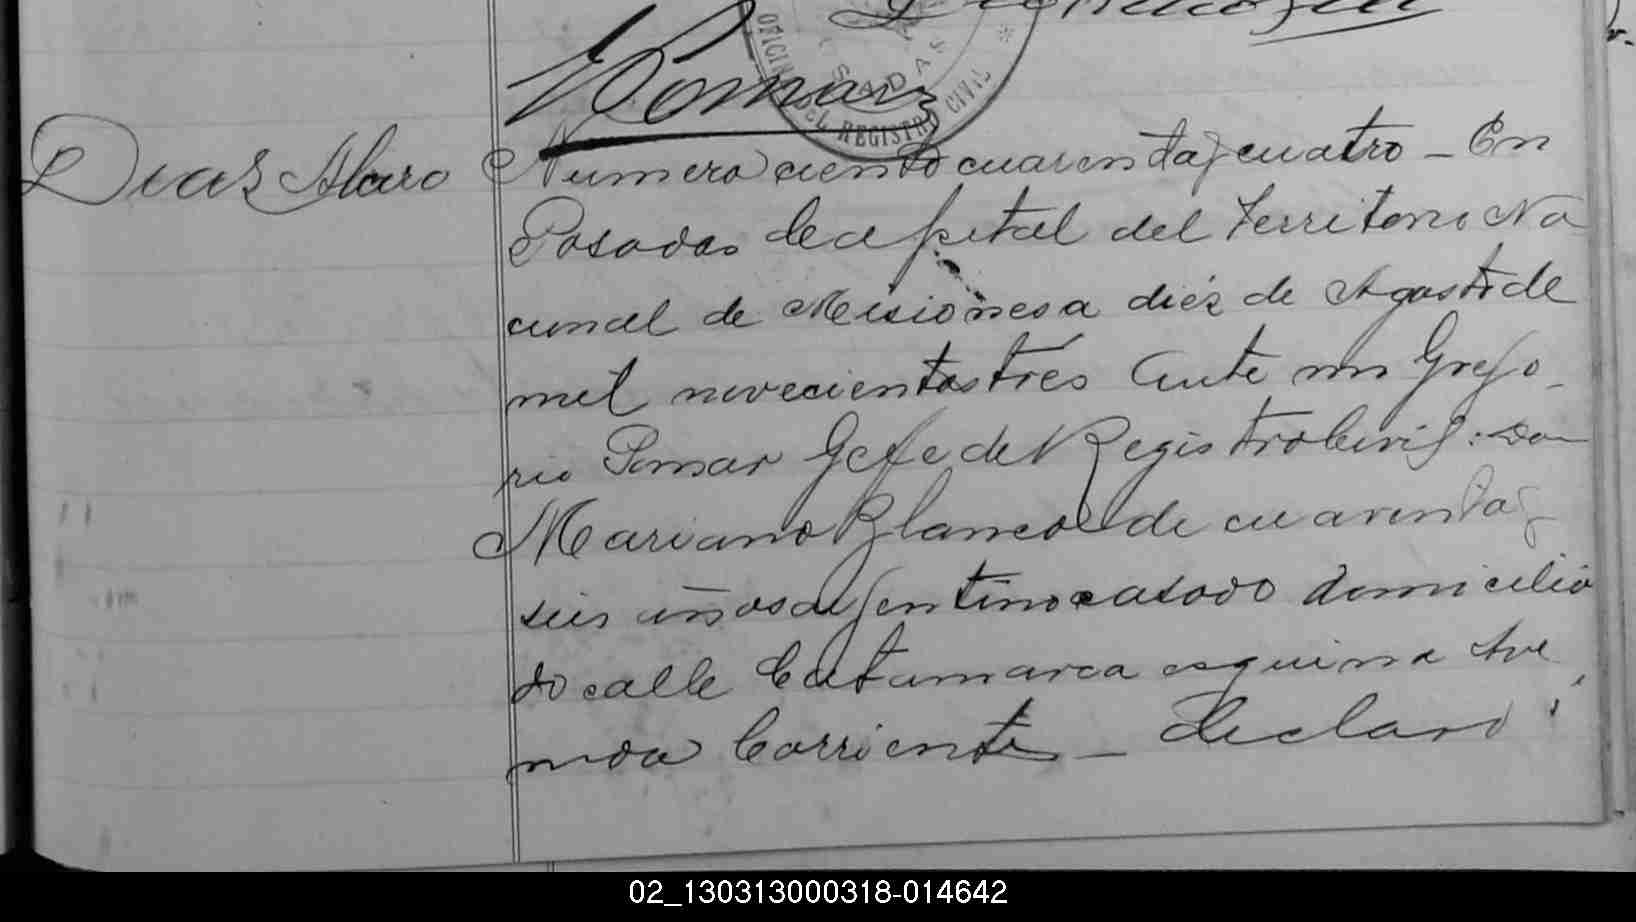 Pomar
OFICINA DEL REGISTRO CIVIL
Dias Alaro
Numero ciento cuarenta y cuatro - En
Posadas Capital del Territorio Na
cional de Misiones a diez de Agosto de
mil novecientos tres Ante mi Grego-
rio Pomar Gefe del Registro Civil: Don
Mariano Blanco de cuarenta y
seis años argentino casado domicilia
do calle Catamarca esquina Ave
nida Corrientes - declaró
02_130313000318-014642